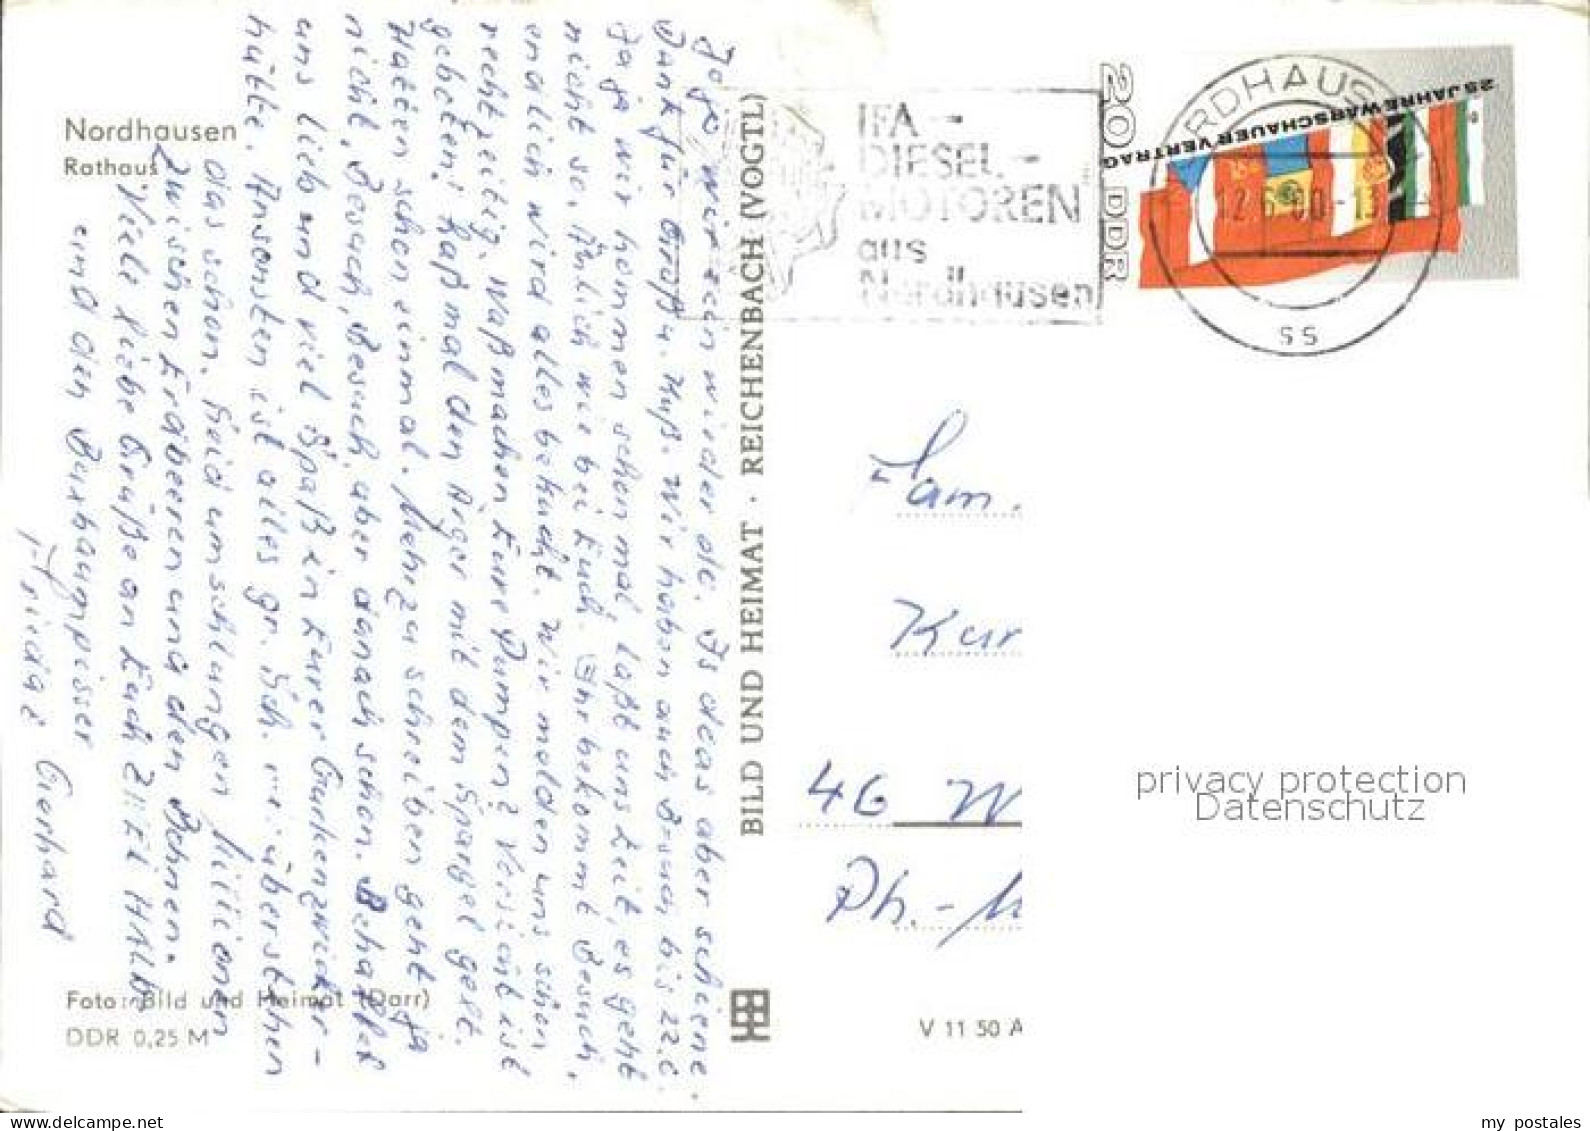 Nordhausen
Rathaus
Jojo wir sein wieder da. Is deas aber schiene.
Dank für Gruß u. Kuß. Wir haben auch Besuch bis 22.6.
Jaja wir kommen schon mal, laßt uns Zeit, es geht
nicht so. Änlich wie bei Euch. Ihr bekommt Besuch,
endlich wird alles bekucht. Wir melden uns schon
rechtzeitig. Waß machen Eure Pumpen? Versicht ist
geboten! Laß mal den Ärger mit dem Spargel geht.
Hatten schon einmal. Mehr zu schreiben geht ja
nicht, Besuch, Besuch, aber danach schon. Behaltet
uns lieb und viel Spaß in Eurer Gurkenzwicker-
hütte. Ansonsten ist alles gr. Sch. überstehen
das schon. Seid umschlungen Millionen
zwischen Erdbeeren und den Bohnen.
Viele liebe Grüße an Euch
und den Buxbaumpisser
Frieda & Gerhard
Foto: Bild und Heimat (Darr)
DDR 0,25 M
BILD UND HEIMAT · REICHENBACH (VOGTL)
IFA -
DIESEL -
MOTOREN
aus
Nordhausen
20 DDR
25 JAHRE WARSCHAUER VERTRAG
NORDHAUSEN
ss
Fam.
Kur
46 W
Ph.-M
V 11 50 A
privacy protection
Datenschutz
www.delcampe.net
my_postales